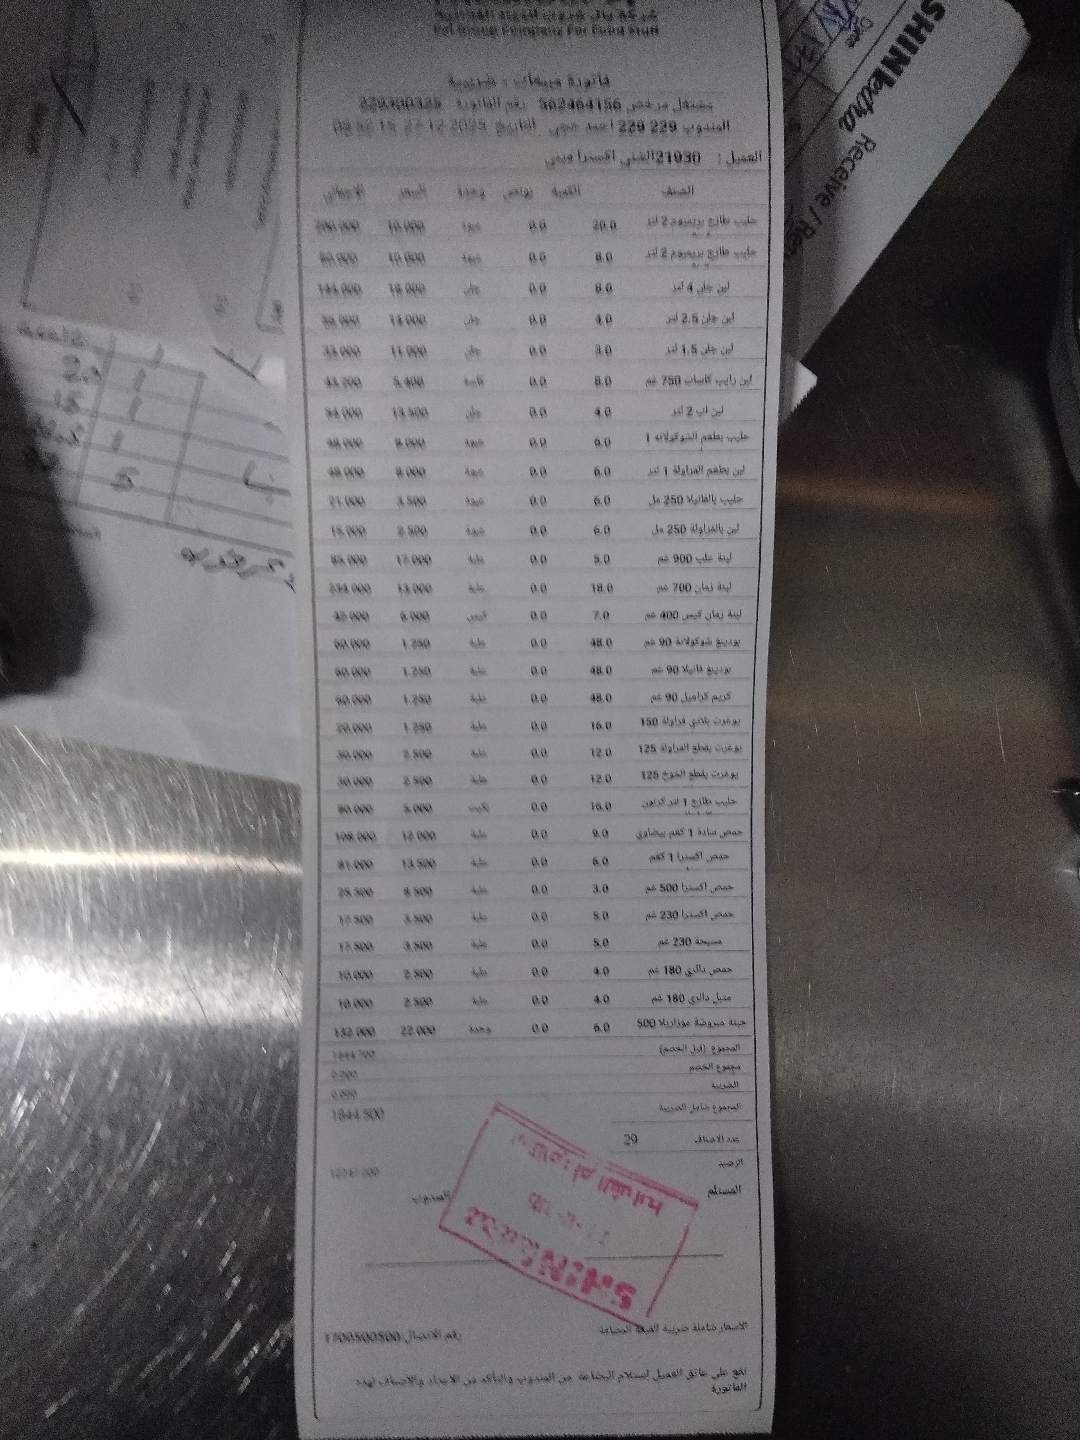 شركة بال جروب للمواد الغذائية
Pal Group Company For Food Stuff
فاتورة مبيعات : ضريبية
مشتغل مرخص 562464156 رقم الفاتورة 229300325
المندوب 229 229 احمد حجي التاريخ 27-12-2025
العميل : 21930 الشني اكسترا
الصنف الكمية بونص وحدة السعر الاجمالي
حليب طازج بريميوم 2 لتر 20.0 0.0 عبوة 10.000 200.000
حليب طازج بريميوم 2 لتر 8.0 0.0 عبوة 10.000 80.000
لبن جلن 4 لتر 8.0 0.0 جلن 18.000 144.000
لبن جلن 2.5 لتر 4.0 0.0 جلن 14.000 56.000
لبن جلن 1.5 لتر 3.0 0.0 جلن 11.000 33.000
لبن رايب كاسات 750 غم 8.0 0.0 كاسة 5.400 43.200
لبن اب 2 لتر 4.0 0.0 جلن 13.500 54.000
حليب بطعم الشوكولاته 1 6.0 0.0 عبوة 8.000 48.000
لبن بطعم الفراولة 1 لتر 6.0 0.0 عبوة 8.000 48.000
حليب بالفانيلا 250 مل 6.0 0.0 عبوة 3.500 21.000
لبن بالفراولة 250 مل 6.0 0.0 عبوة 2.500 15.000
لبنة علب 900 غم 5.0 0.0 علبة 17.000 85.000
لبنة زمان 700 غم 18.0 0.0 علبة 13.000 234.000
لبنة زمان كيس 400 غم 7.0 0.0 كيس 6.000 42.000
بودينغ شوكولاتة 90 غم 48.0 0.0 علبة 1.250 60.000
بودينغ فانيلا 90 غم 48.0 0.0 علبة 1.250 60.000
كريم كراميل 90 غم 48.0 0.0 علبة 1.250 60.000
يوغرت بلادي فراولة 150 16.0 0.0 علبة 1.250 20.000
يوغرت بقطع الفراولة 125 12.0 0.0 علبة 2.500 30.000
يوغرت بقطع الخوخ 125 12.0 0.0 علبة 2.500 30.000
حليب طازج 1 لتر كرتون 16.0 0.0 باكيت 5.000 80.000
حمص سادة 1 كغم بيضاوي 9.0 0.0 علبة 12.000 108.000
حمص اكسترا 1 كغم 6.0 0.0 علبة 13.500 81.000
حمص اكسترا 500 غم 3.0 0.0 علبة 8.500 25.500
حمص اكسترا 230 غم 5.0 0.0 علبة 3.500 17.500
مسبحة 230 غم 5.0 0.0 علبة 3.500 17.500
حمص دالري 180 غم 4.0 0.0 علبة 2.500 10.000
متبل دالري 180 غم 4.0 0.0 علبة 2.500 10.000
جبنة مبروشة موزاريلا 500 6.0 0.0 وحدة 22.000 132.000
المجموع (قبل الخصم) 1844.700
مجموع الخصم 0.000
الضريبة 0.000
المجموع شامل الضريبة 1844.500
عدد الاصناف 29
الرصيد
المستلم المندوب
SHINI extra
الاسعار شاملة ضريبة القيمة المضافة رقم الاتصال 1700500500
تقع على عاتق العميل استلام البضاعة من المندوب والتأكد من الاعداد والاصناف لهذه
الفاتورة
SHINI extra
Receive / Ret
Date
20 1
15 1
1
5